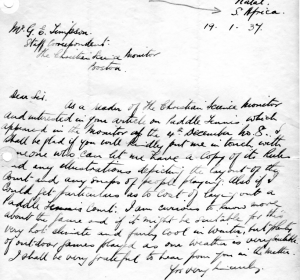 Natal.
S. Africa.
19. 1. 37.
Mr. G. E. Timpson
Staff Correspondent
The Christian Science Monitor
Boston
Dear Sir,
As a reader of the Christian Science Monitor
and interested in your article on Paddle Tennis which
appeared in the Monitor of the 4th December No. 8. I
shall be glad if you will kindly put me in touch with
someone who can let me have a copy of the Rules
and any illustrations depicting the layout of the
court and any groups of people playing. Also if you
could get particulars as to cost of laying out a
Paddle Tennis court. I am anxious to know more
about the game and if it might be suitable for this
very hot climate and fairly cool in winter, but plenty
of outdoor games played as our weather is very
I shall be very grateful to hear from you in the matter.
Yrs very sincerely,